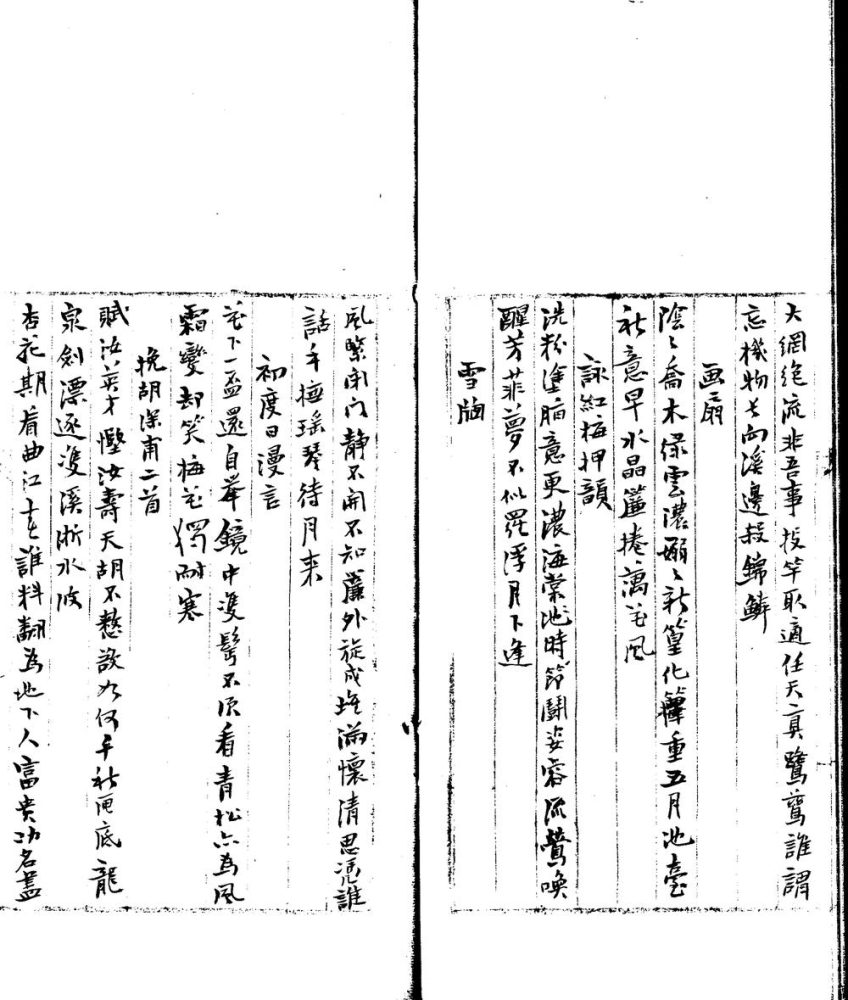 大網絶流非吾事投竿取適任天真鷺鷥誰謂
忘機物長向溪邊殺錦鱗
画扇
陰〻喬木綠雲濃嫋〻新篁化籜重五月池臺
秋意早水晶簾捲藕花風
詠紅梅押韻
洗粉塗脂意更濃海棠池時節鬪姿容流鶯喚
醒芳菲夢不似羅浮月下逢
雪牕
風緊閉门靜不開不知簾外旋成堆滿懷清思凭誰
話手撫瑤琴待月来
初度日漫言
花下一盃還自舉鏡中雙鬂不須看青松亦為風
霜變却笑梅花獨耐寒
挽胡深甫二首
賦汝英才慳汝壽天胡不憗設如何千秋匣底龍
泉劍漂逐雙溪浙水波
杏花期看曲江春誰料翻為地下人富贵功名蓋